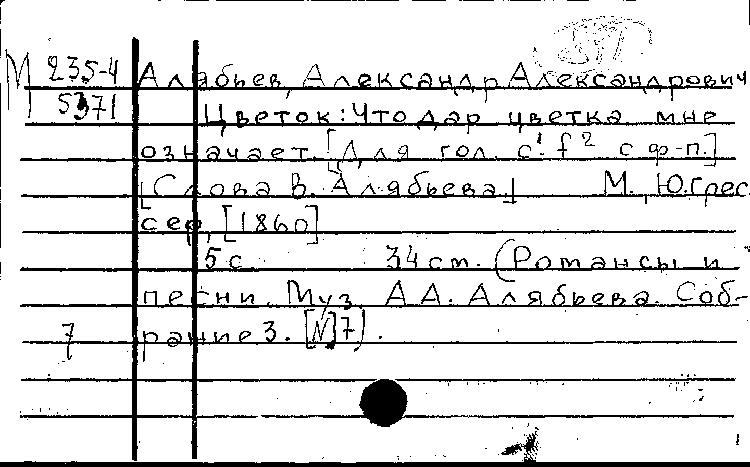 М 235-4 Алябьев, Александр Александрович
5371 Цветок: Что дар цветка мне
означает. [Для гол. c¹-f² с ф-п.]
[Слова В. Алябьева.] М., Ю.Грес
сер, [1860]
5 с 34 см. (Романсы и
песни. Муз. А А. Алябьева. Соб-
7 рание 3. [N]7).